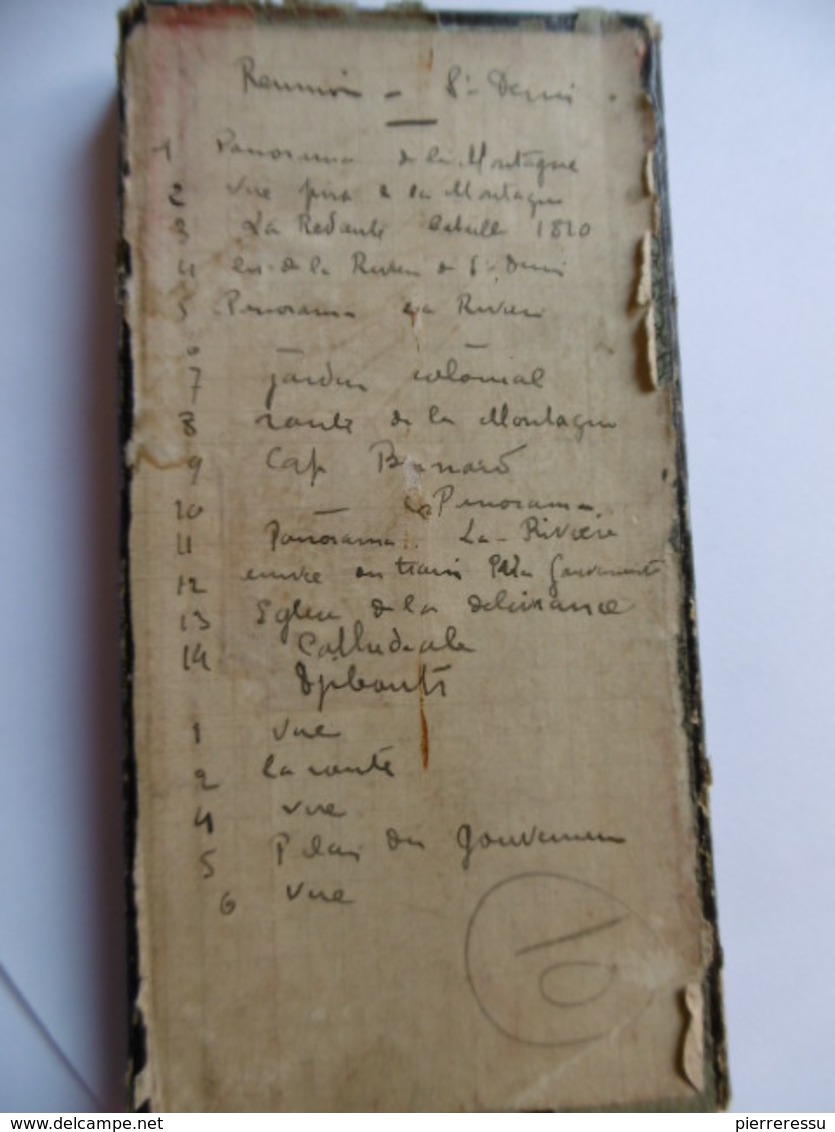 Reunion - St Denis
1 Panorama de la Montagne
2 Vue prise de la Montagne
3 La Redoute bataille 1810
4 de la Riviere de St Denis
5 Panorama Riviere
6
7 jardin colonial
8 route de la Montagne
9 Cap Bernard
10 Panorama
11 Panorama La Riviere
12 en train Gouvernement
13 Eglise de la delivrance
14 Cathedrale
1 Vue
2 la route
4 Vue
5 Palais du gouverneur
6 Vue
10
delcampe.net
pierreressu